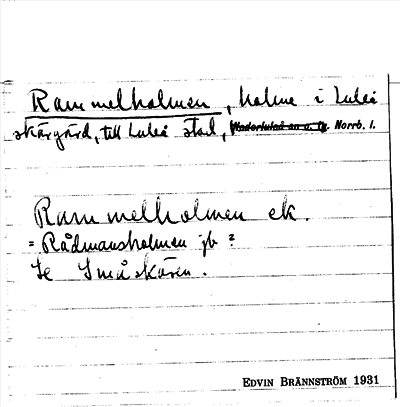 Rammelholmen, holme i Luleå
skärgård, till Luleå stad, Nederluleå sn o. tg. Norrb. l.
Rammelholmen ek.
= Rådmansholmen jb ?
Se Småskären.
EDVIN BRÄNNSTRÖM 1931